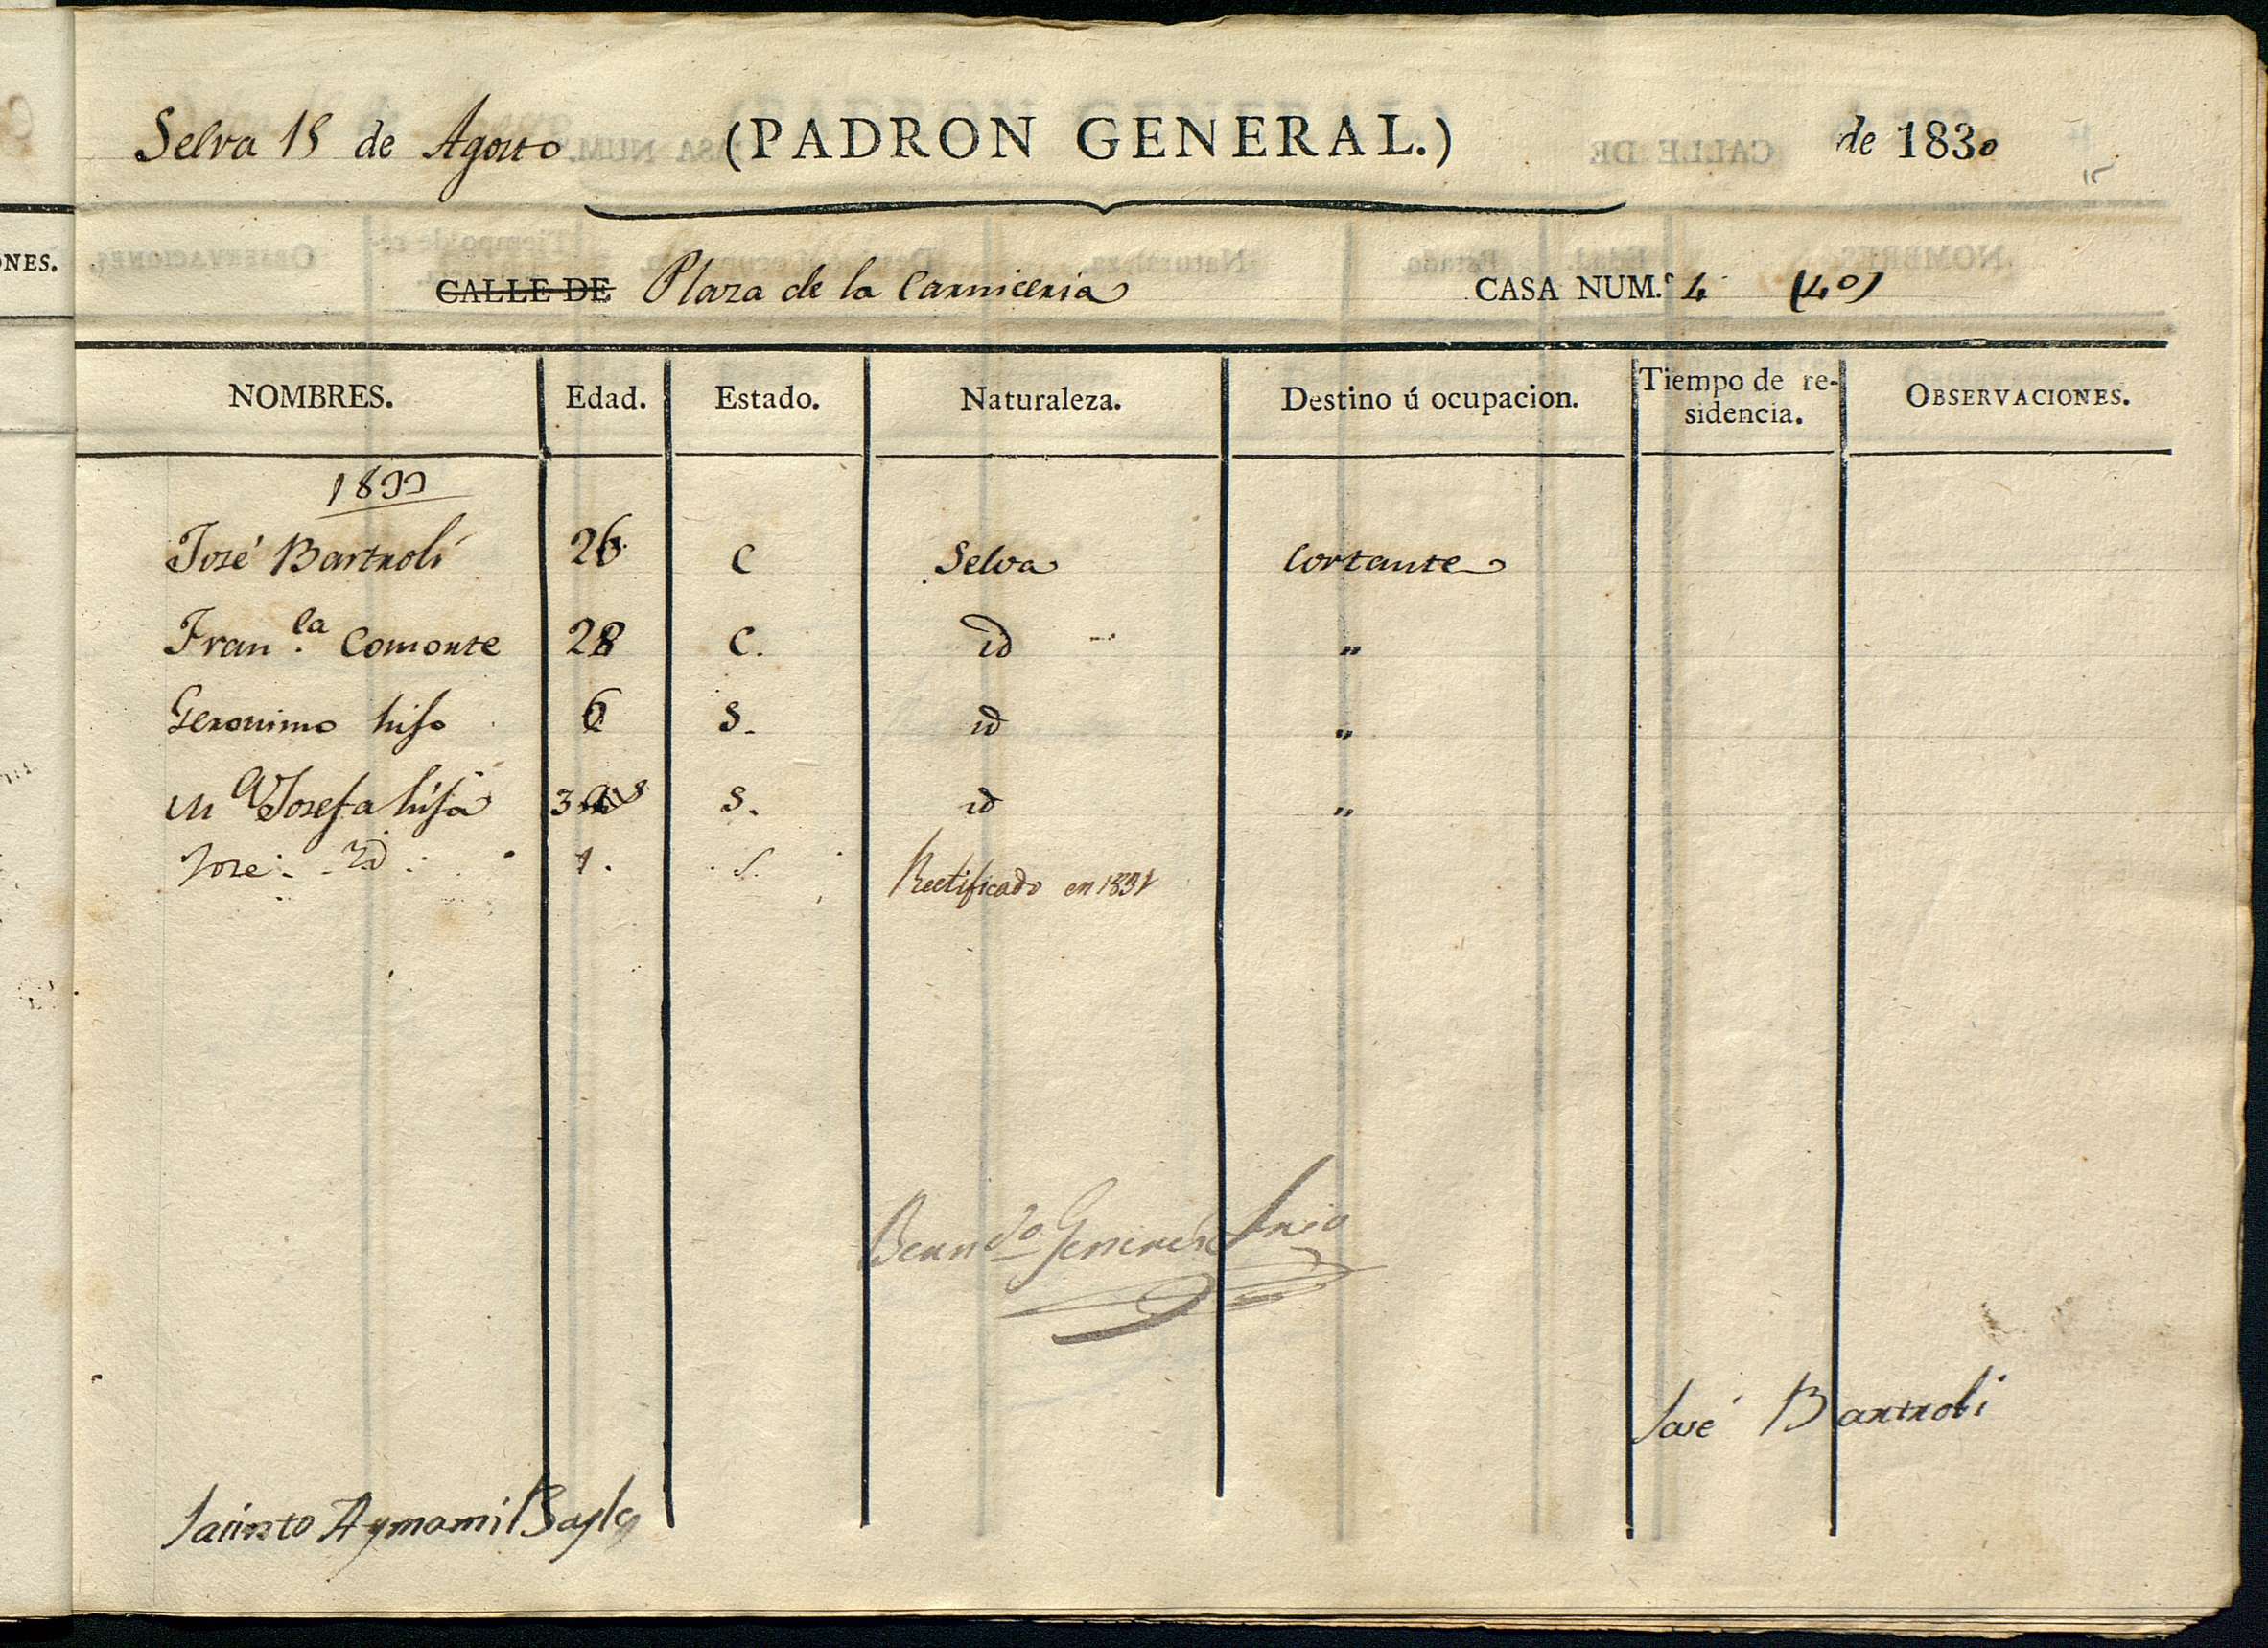 Selva 18 de Agosto (PADRON GENERAL.) de 1830
CALLE DE Plaza de la Carniceria CASA NUM.º 4 (40)
NES.
NOMBRES. Edad. Estado. Naturaleza. Destino ú ocupacion. Tiempo de re-sidencia. OBSERVACIONES.
1833
José Bartroli 26 C Selva Cortante
Fran.ca Comonte 28 C. id "
Geronimo hijo 6 S. id "
Mª Josefa hija 3 S. id "
Jose id 1. S. Rectificado en 1831
José Bartroli
Jacinto Aymami Bayle